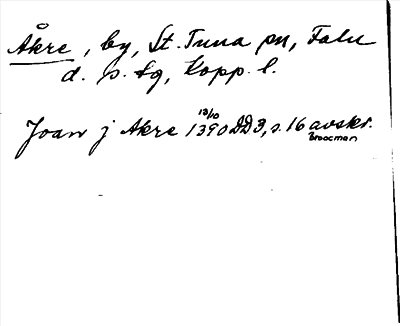 Åkre, by, St. Tuna sn, Falu
d. s. lg, Kopp. l.
13/10
Joan j Akre 1390 DD3, s. 16 avskr.
Broocman